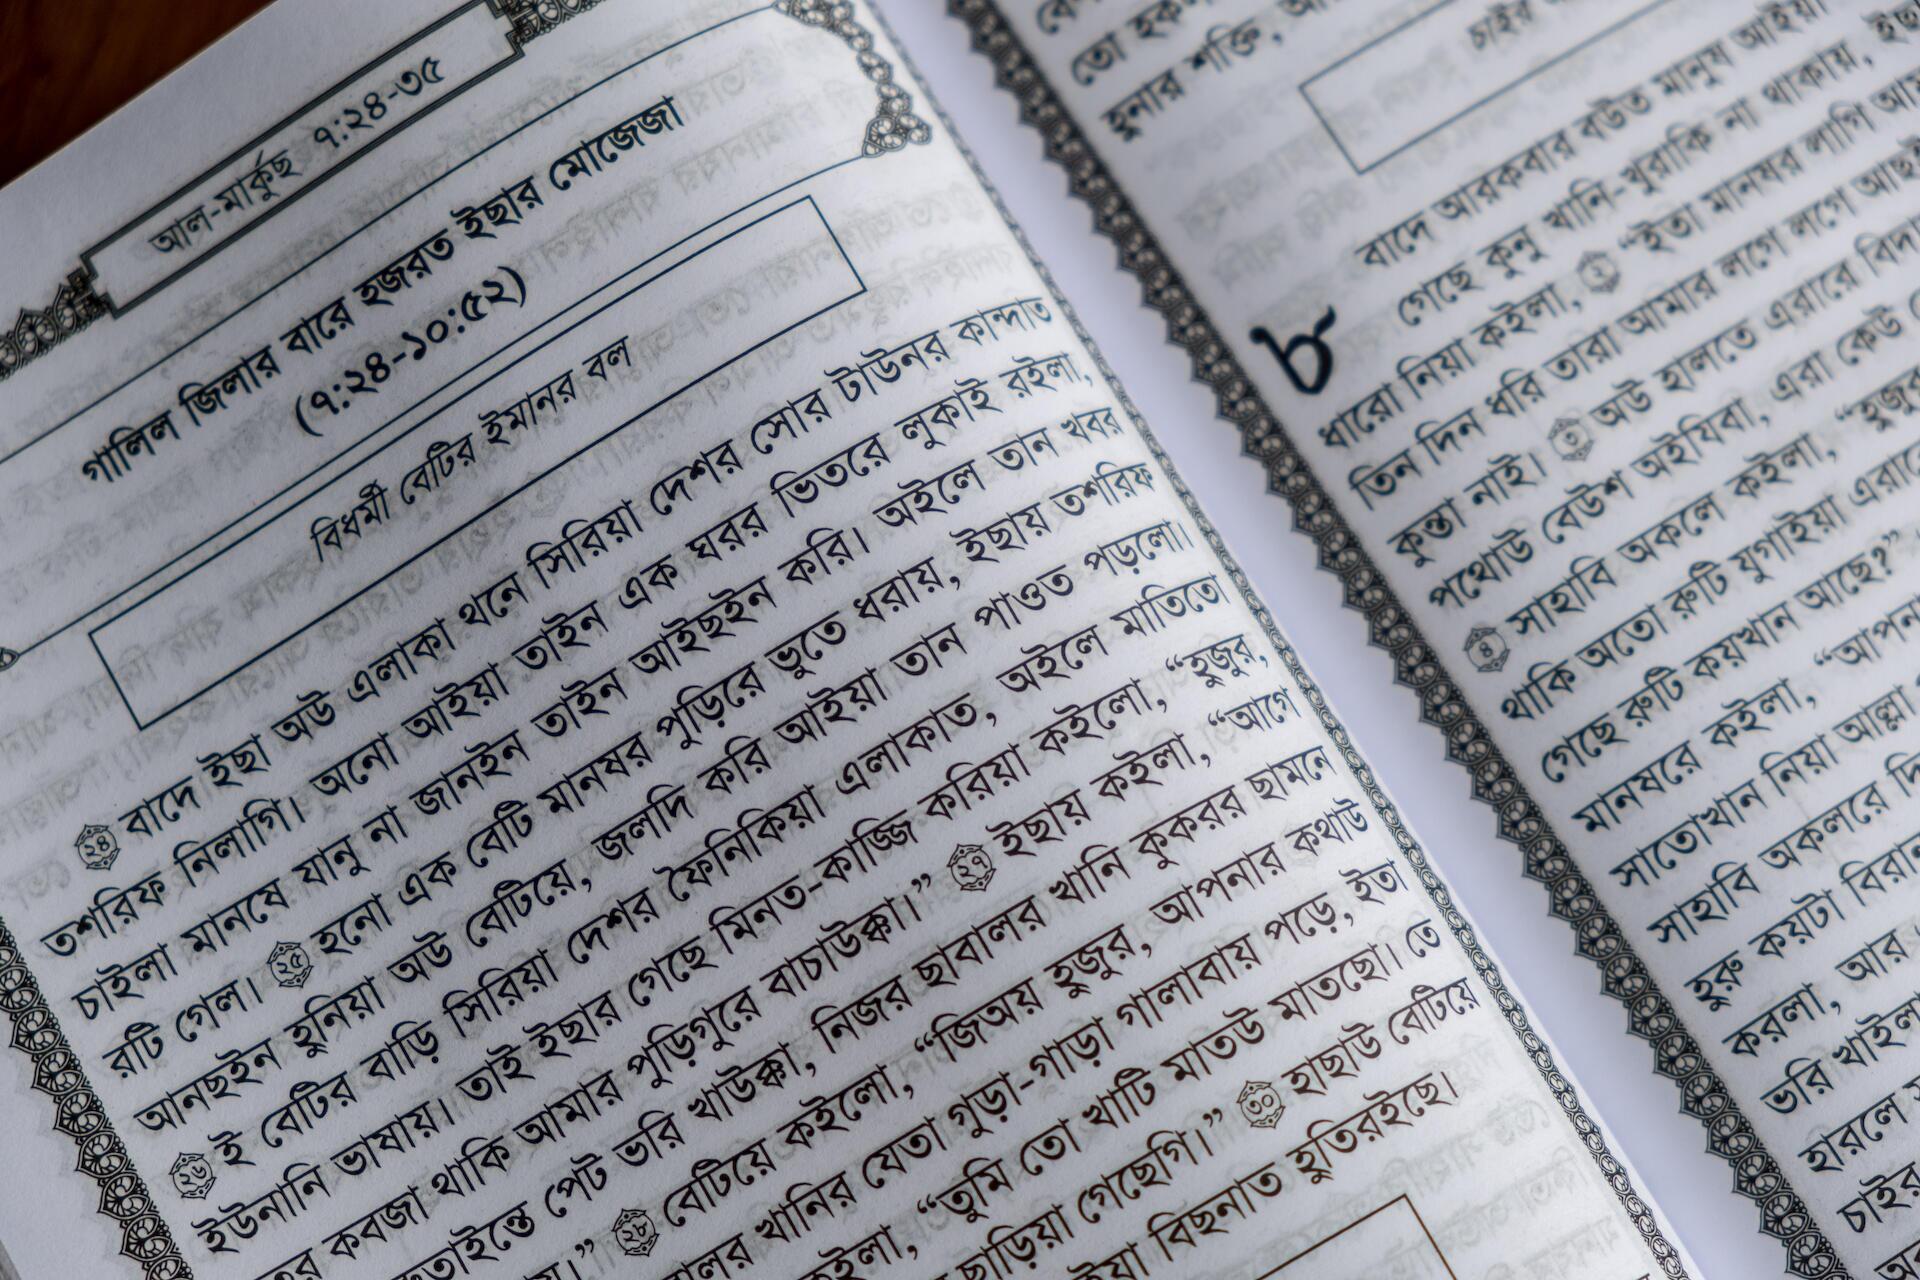 আল-মার্কুছ ৭:২৪-৩৫
গালিল জিলার বারে হজরত ইছার মোজেজা
(৭:২৪-১০:৫২)
বিধর্মী বেটির ইমানর বল
২৪ বাদে ইছা অউ এলাকা থনে সিরিয়া দেশর সোর টাউনর কান্দাত
তশরিফ নিলাগি। অনো আইয়া তাইন এক ঘরর ভিতরে লুকাই রইলা,
চাইলা মানষে যানু না জানইন তাইন আইছইন করি। অইলে তান খবর
রটি গেল। ২৫ হনো এক বেটি মানষর পুড়িরে ভুতে ধরায়, ইছায় তশরিফ
আনছইন হুনিয়া অউ বেটিয়ে, জলদি করি আইয়া তান পাওত পড়লো।
২৬ ই বেটির বাড়ি সিরিয়া দেশর ফৈনিকিয়া এলাকাত, অইলে মাতিতো
ইউনানি ভাষায়। তাই ইছার গেছে মিনত-কাজ্জি করিয়া কইলো, “হুজুর,
কবজা থাকি আমার পুড়িগুরে বাচাউক্কা।” ২৭ ইছায় কইলা, “আগে
পেট ভরি খাউক্কা, নিজর ছাবালর খানি কুকরর ছামনে
২৮ বেটিয়ে কইলো, “জিঅয় হুজুর, আপনার কথাউ
খানির যেতা গুড়া-গাড়া গালাবায় পড়ে, ইতা
“তুমি তো খাটি মাতউ মাতছো। তে
ছাড়িয়া গেছেগি।” ৩০ হাছাউ বেটিয়ে
বিছনাত হুতিরইছে।
তো
হুনার শক্তি,
চাইর
৮ বাদে আরকবার বউত মানুষ আইয়া
গেছে কুনু খানি-খুরাকি না থাকায়,
ধারো নিয়া কইলা, ২ “ইতা মানষর লাগি
তিন দিন ধরি তারা আমার লগে লগে
কুন্তা নাই। ৩ অউ হালতে এরারে
পথোউ বেউশ অইযিবা, এরা কেউ
৪ সাহাবি অকলে কইলা, “হুজুর
থাকি অতো রুটি যুগাইয়া
গেছে রুটি কয়খান আছে?”
মানষরে কইলা, “আপন
সাতোখান নিয়া আল্লা
সাহাবি অকলরে
হুরু কয়টা
করলা, আর
ভরি খাইল
হারলে